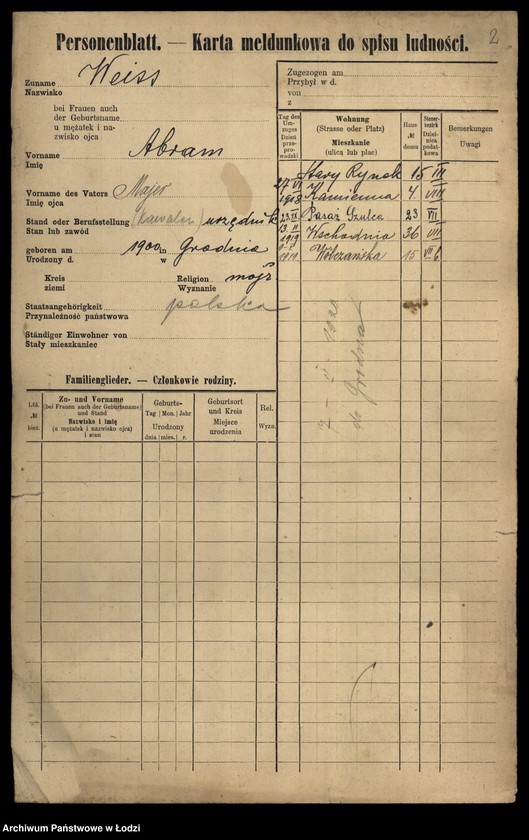 2
Personenblatt. — Karta meldunkowa do spisu ludności.
Zuname Weiss
Nazwisko
bei Frauen auch
der Geburtsname
u mężatek i na-
zwisko ojca
Vorname Abram
Imię
Vorname des Vaters Majer
Imię ojca
Stand oder Berufsstellung (kawaler) urzędnik
Stan lub zawód
geboren am 1900 in Grodnie
Urodzony d. w
Kreis Religion mojż
ziemi Wyznanie
Staatsangehörigkeit polska
Przynależność państwowa
Ständiger Einwohner von
Stały mieszkaniec
Zugezogen am
Przybył w d.
von
z
Tag des Um- zuges Dzień prze- prowadzki
Wohnung (Strasse oder Platz) Mieszkanie (ulica lub plac)
Haus № domu
Steuer- bezirk Dzielni- ca podat- kowa
Bemerkungen Uwagi
Stary Rynek 15 III
27 VI 1918 Kamienna 4 VIII
23 II Pasaż Szulca 23 VII
13 II 1919 Wschodnia 36 VII
1919 Wólczańska 15 VII 6
7 – V 1920
do Grodna
Familienglieder. — Członkowie rodziny.
Lfd. №
bież.
Zu- und Vorname
(bei Frauen auch der Geburtsname)
und Stand
Nazwisko i imię
(u mężatek i nazwisko ojca)
i stan
Geburts-
Tag Mon. Jahr
Urodzony
dnia mies. r.
Geburtsort
und Kreis
Miejsce
urodzenia
Rel.
Wyzn.
Archiwum Państwowe w Łodzi